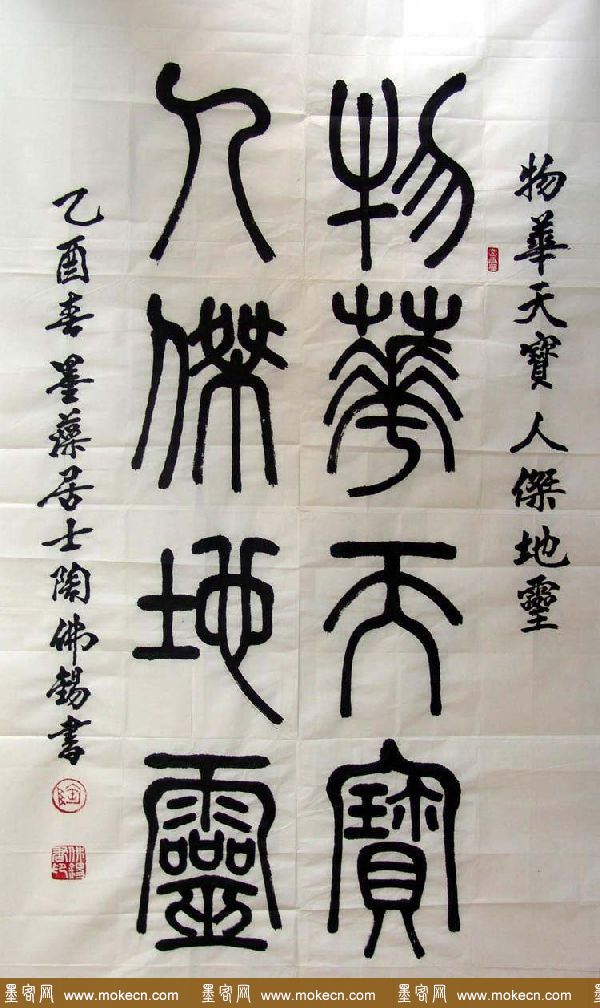 物華天寶人傑地靈
物華天寶
人傑地靈
乙酉春墨藻居士陶佛錫書
墨客网 www.mokecn.com 墨客网 www.mokecn.com 墨客网 www.mokecn.com